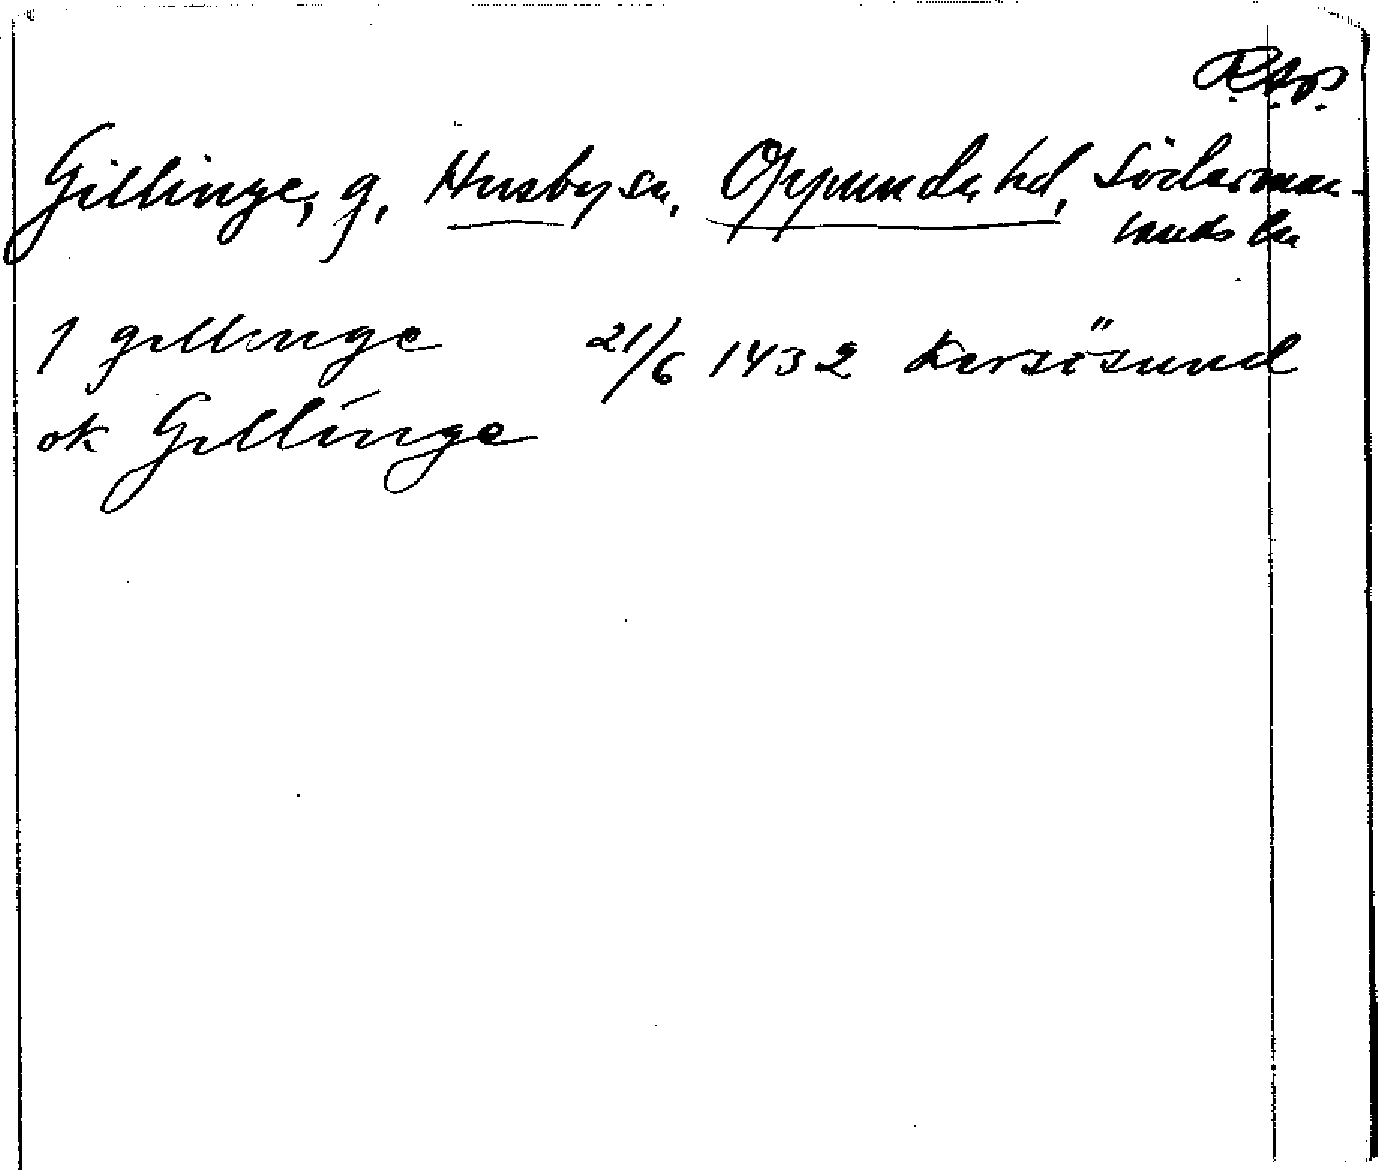 R.A.P.
Gillinge, g, Husby sn, Oppunda hd, Söderman-
lands län
J gillinge 21/6 1432 Kersösund
ok Gillinge